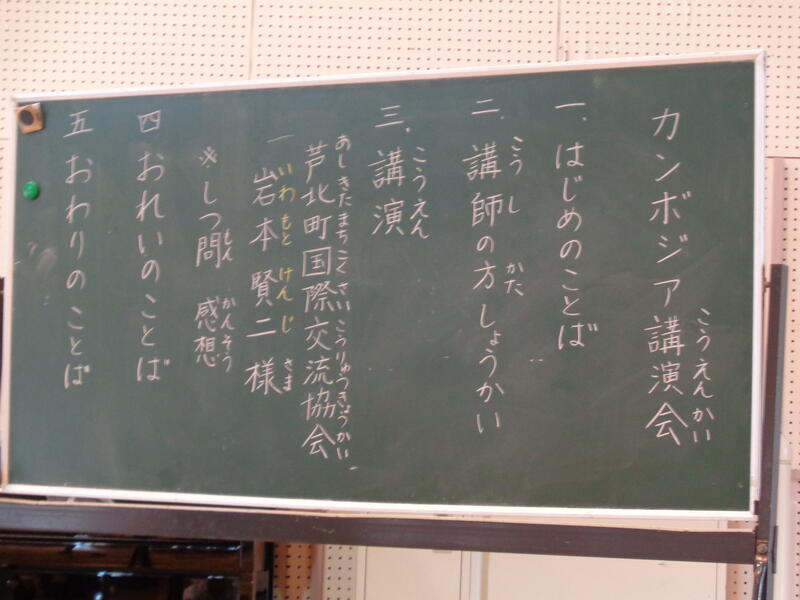 カンボジア講演会
こうえんかい
一.はじめのことば
二.講師の方しょうかい
こうし かた
三.講演
こうえん
芦北町国際交流協会
あしきたまちこくさいこうりゅうきょうかい
岩本賢二様
いわもと けんじ さま
※しつ問 感想
もん かんそう
四 おれいのことば
五 おわりのことば